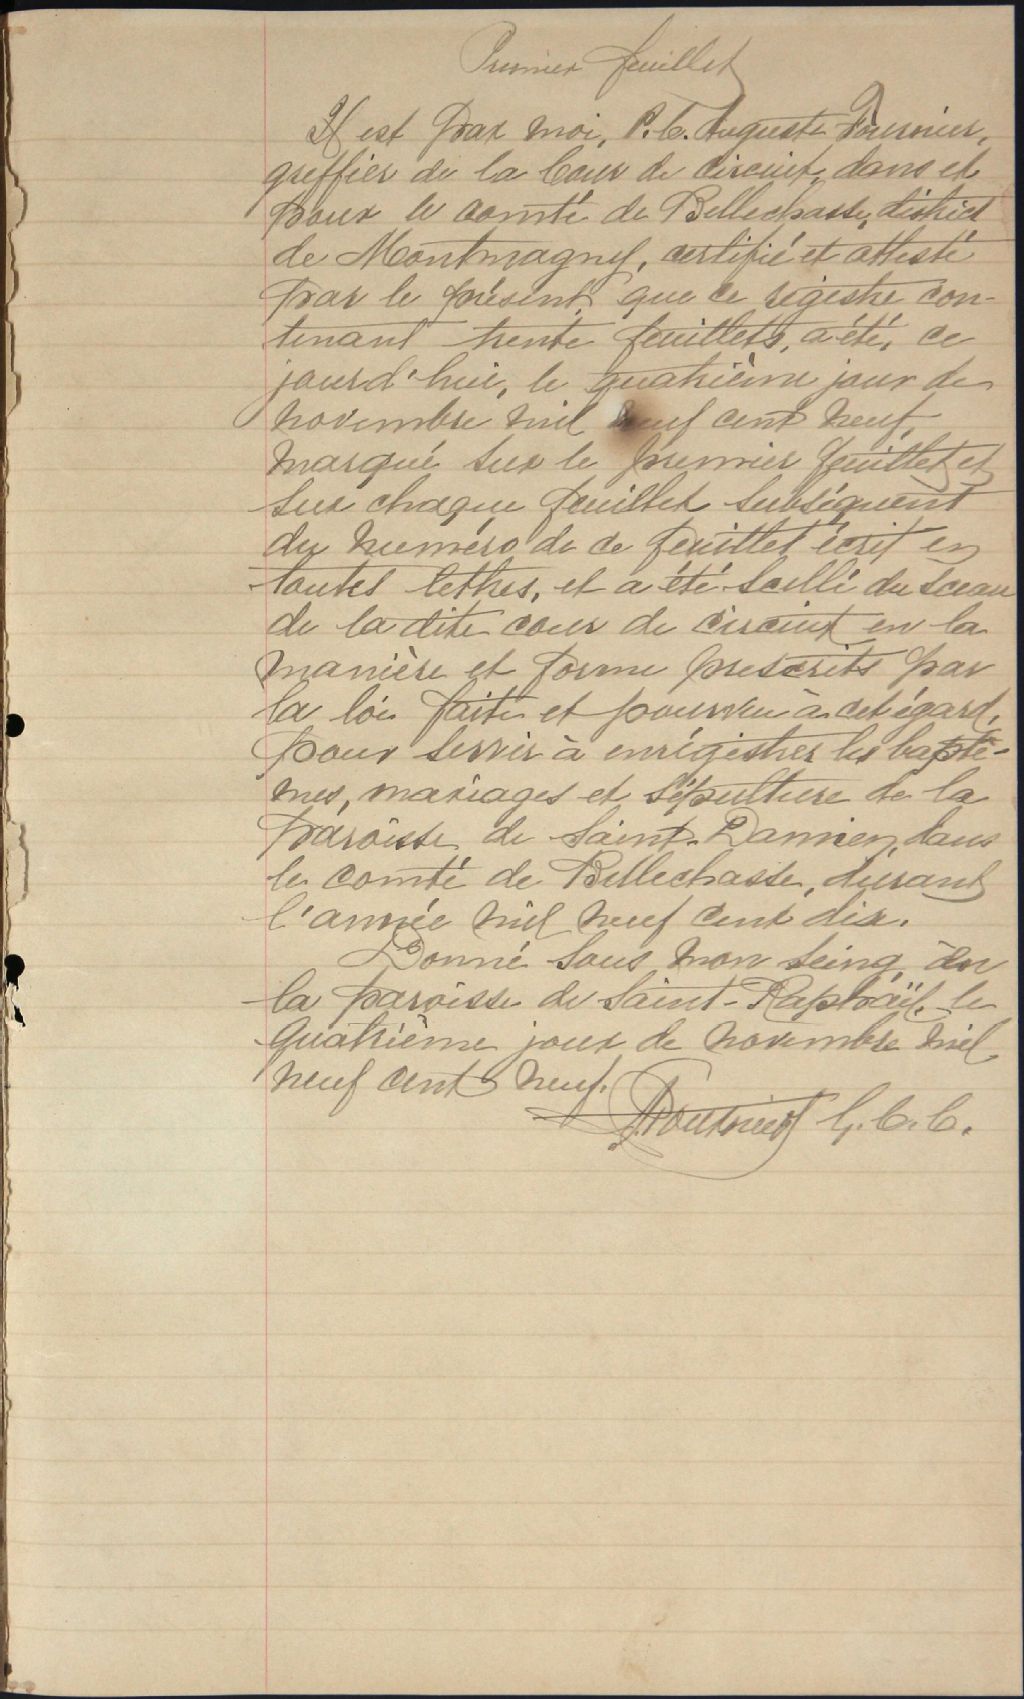 Premier feuillet
Il est par moi, P. C. Auguste Fournier,
greffier de la Cour de circuit, dans et
pour le comté de Bellechasse, district
de Montmagny, certifié et attesté
par le présent, que ce régistre con-
tenant trente feuillets, a été, ce
jourd'hui, le quatrième jour de
novembre mil neuf cent neuf,
marqué sur le premier feuillet et
sur chaque feuillet subséquent
du numéro de ce feuillet écrit en
toutes lettres, et a été scellé du sceau
de la dite cour de circuit en la
manière et forme prescrits par
la loi faite et pourvu à cet égard,
pour servir à enrégistrer les baptê-
mes, mariages et sépulture de la
paroisse de Saint-Damien, dans
le comté de Bellechasse, durant
l'année mil neuf cent dix.
Donné sous mon seing, en
la paroisse de Saint-Raphaël, le
quatrième jour de novembre mil
neuf cent neuf.
Fournier G. C. C.